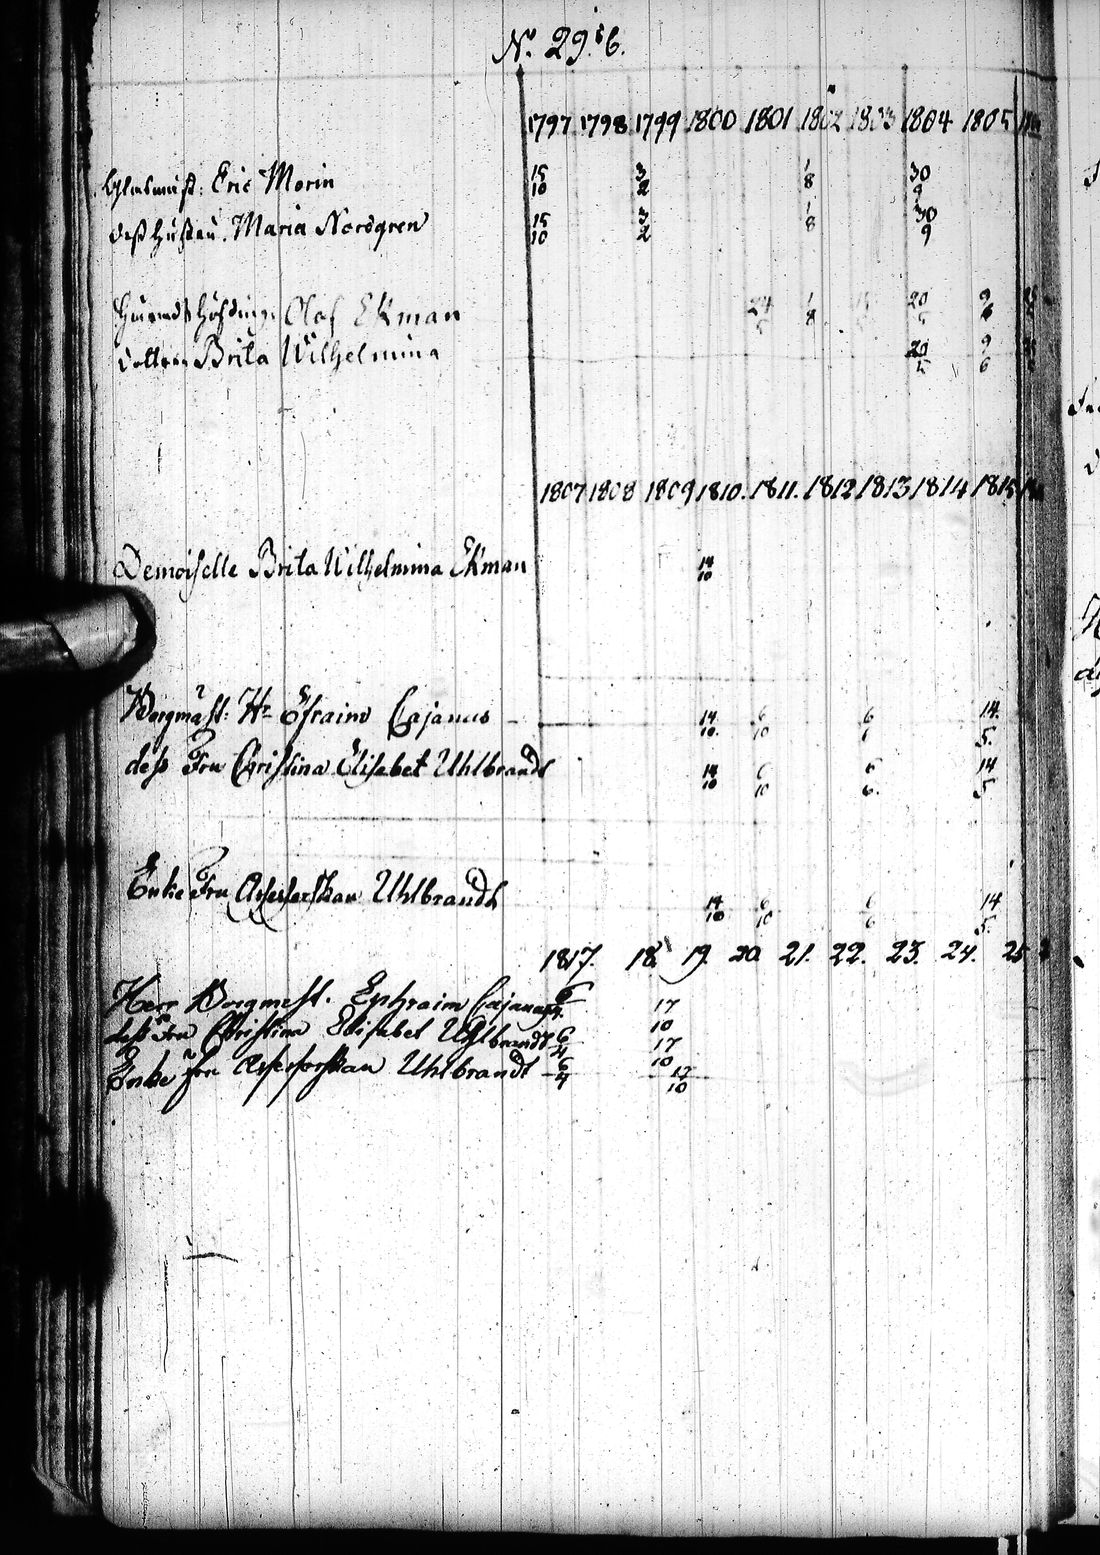 N. 29. 6.
1797 1798 1799 1800 1801 1802 1803 1804 1805
Eric Morin 15/10 3/2 1/8 30/9
dess hustru. Maria Nordgren 15/10 3/2 1/8 30/9
Häradshöfding. Olof Ekman 24/5 1/8 20/5 9/6
dottren Brita Wilhelmina 20/5 9/6
1807 1808 1809 1810. 1811. 1812 1813 1814 1815
Demoiselle Brita Wilhelmina Ekman 14/10
Borgmäst: Hr Efraim Cajanus 14/10. 6/10 6 14./5.
dess Fru Christina Elisabet Uhlbrandt 14/10 6/10 6/6. 14/5
Enke Fru Assessorskan Uhlbrandt 14/10 6/10 6/6 14/5.
1817. 18 19. 20 21. 22. 23. 24. 25
Herr Borgmest. Ephraim Cajanus 6/4. 17/10
dess Fru Christina Elisabet Uhlbrandt 6/4 17/10
Enke fru Assessorskan Uhlbrandt 6/4 17/10